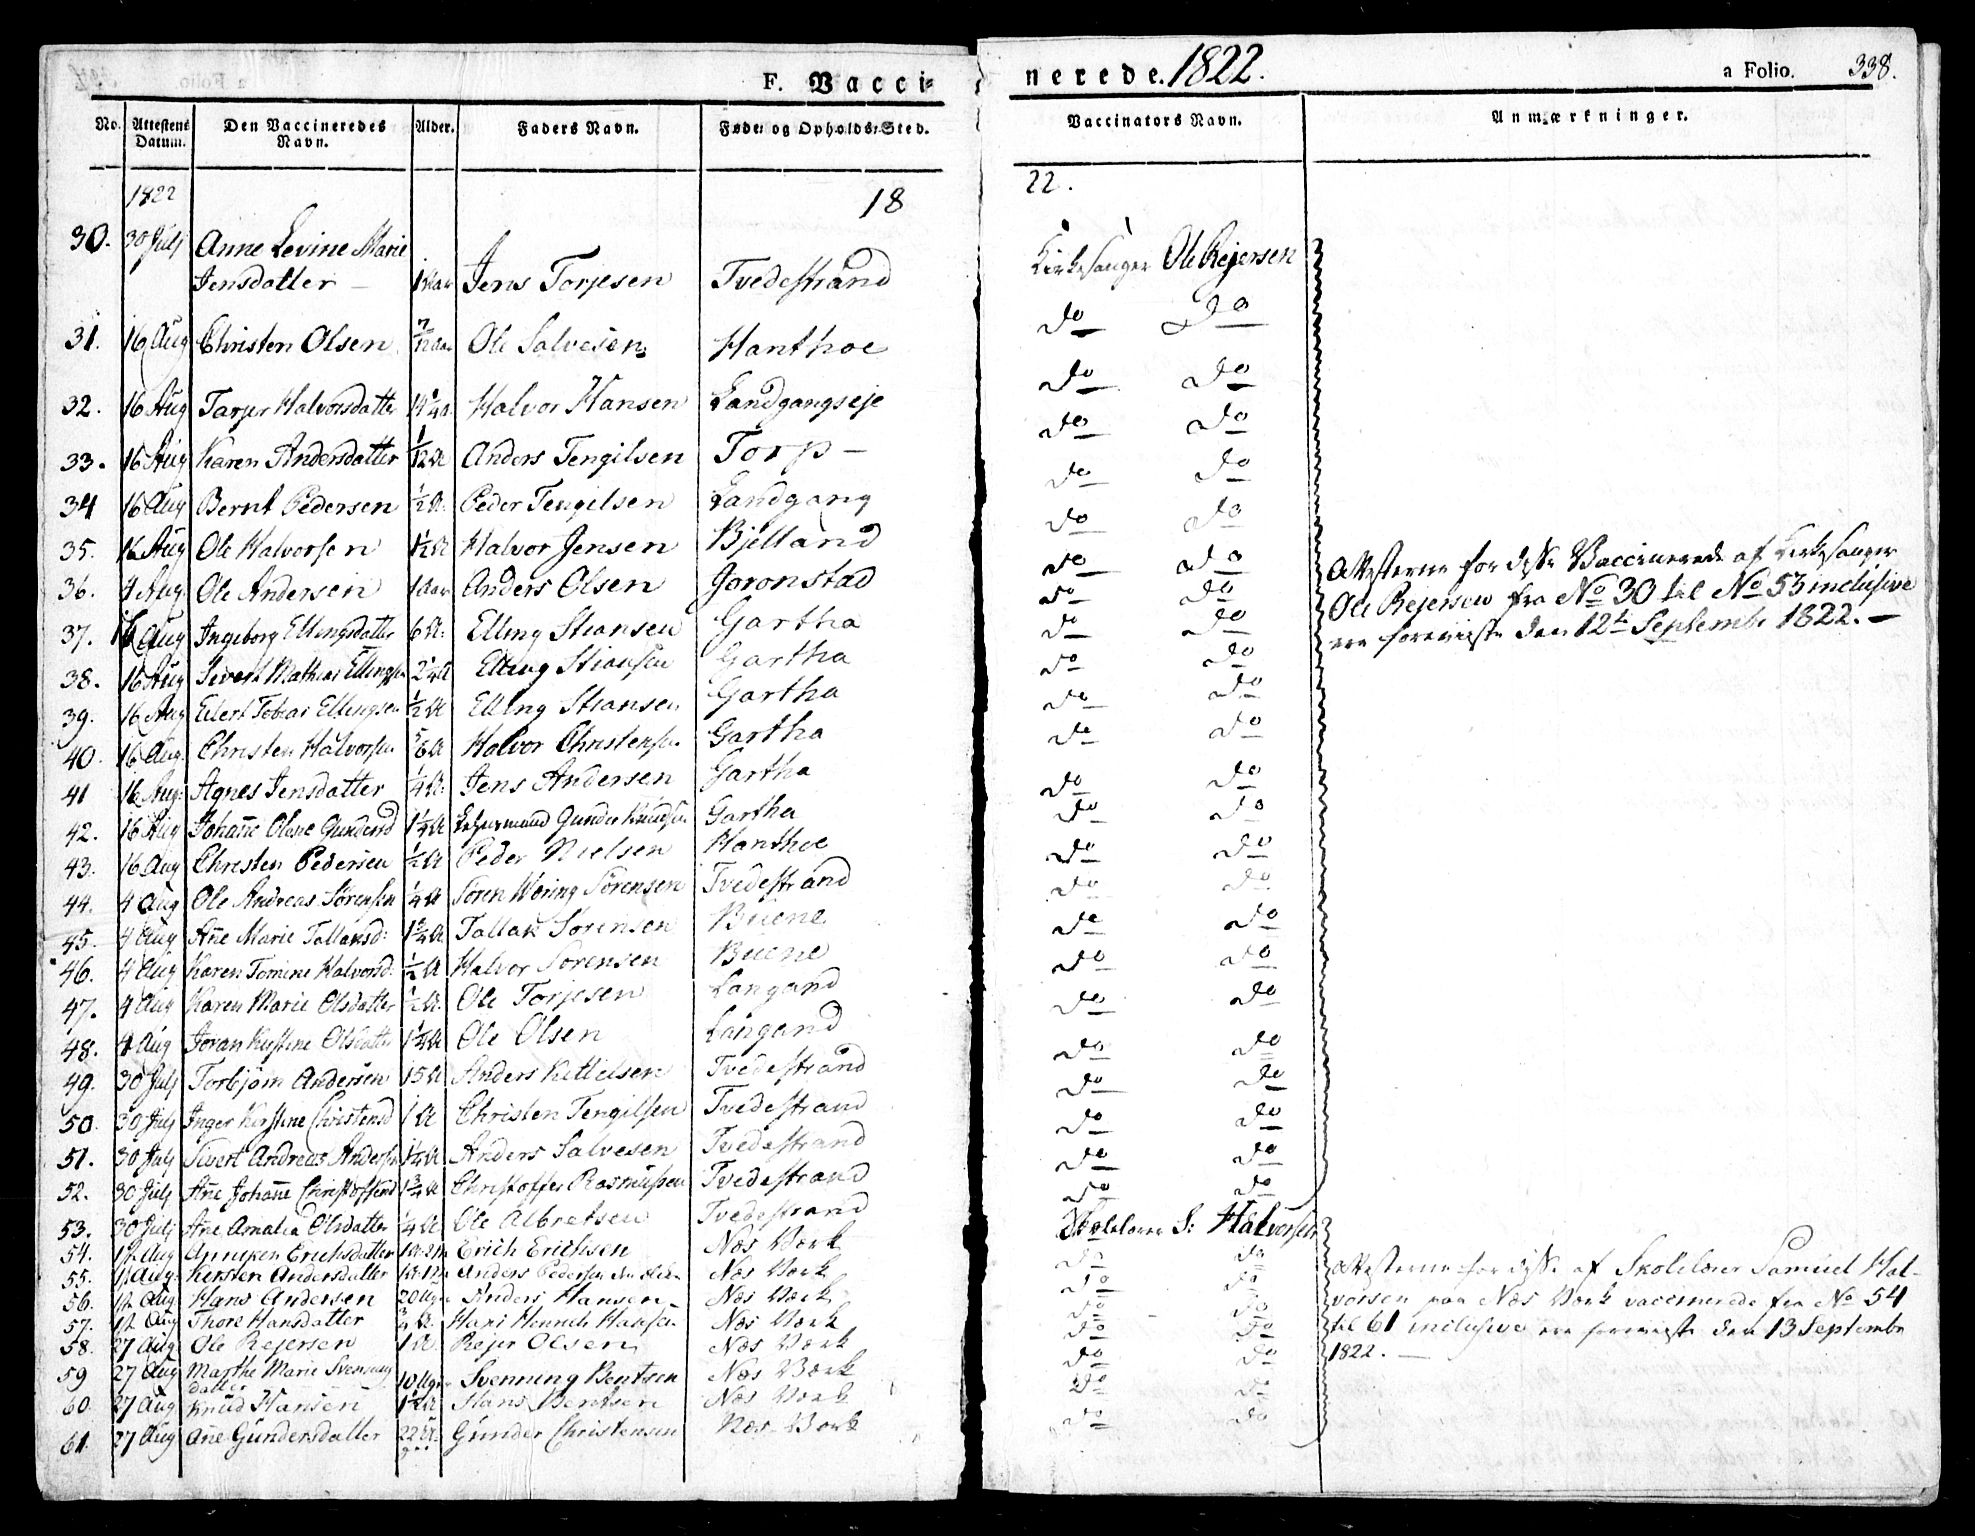 F. Vacci-
nerede. 1822.
a Folio. 338.
No. Attestens Datum. Den Vaccineredes Navn. Alder. Faders Navn. Føde- og Opholds-Sted. Vaccinators Navn. Anmærkninger.
1822 18 22.
30. 30 Julj Anne Levine Marie
Jensdatter 1 Aar Jens Torjesen Tvedestrand Kirkesanger Ole Rejersen
31. 16 Aug Christen Olsen 7/12 Aar Ole Salvesen Hanthoe do do
32. 16 Aug Tarjer Halvorsdatter Halvor Hansen Landgangseje do do
33. 16 Aug Karen Andersdatter 1/12 A Anders Tengilsen Torp do do
34 16 Aug Bernt Pedersen 1/2 A. Peder Tengilsen Landgang do do
35. 16 Aug Ole Halvorsen Halvor Jensen Bjelland do do
36. 4 Aug Ole Andersen 1 Aar Anders Olsen Goronstad do do
37. 16 Aug Ingeborg Ellingsdatter 6 A. Elling Stiansen Gartha do do
38. 16 Aug Sivert Mathias Ellingsen 2 1/4 A Elling Stiansen Gartha do do
39. 16 Aug Eilert Tobias Ellingsen 1/2 A Elling Stiansen Gartha do do
40. 16 Aug. Christen Halvorsen 5/6 A Halvor Christensen Gartha do do
41 16 Aug. Agnes Jensdatter 1/4 A. Jens Andersen Gartha do do
42. 16 Aug Johanne Olene Gundersd 1 1/4 A Gunder Knudsen Gartha do do
43. 16 Aug Christen Pedersen 1/2 A Peder Nielsen Hanthoe do do
44. 4 Aug Ole Andreas Sørensen 1/4 A Søren Wøring Sørensen Tvedestrand do do
45. 4 Aug Añe Marie Tallaksd: 1 3/4 A Tallak Sørensen Buene do do
46. 4 Aug Karen Tomine Halvorsd. 1/2 A Halvor Sørensen Buene do do
47. 4 Aug Karen Marie Olsdatter 1/2 A. Ole Torjesen Langand do do
48. 4 Aug Joran Kirstine Olsdatter 1 1/4 A Ole Olsen Langand do do
49. 30 Julj Torbjørn Andersen 15 A Anders Kittelsen Tvedestrand do do
50. 30 Julj Inger Kirstine Christensd 1 A Christen Tengilsen Tvedestrand do do
51. 30 Julj Sivert Andreas Andersen 1 1/4 A Anders Salvesen Tvedestrand do do
52. 30 Julj Añe Johañe Christoffersd 1 3/4 A Christoffer Rasmussen Tvedestrand do do
53. 30 Julj Añe Amalia Olsdatter 1/4 A Ole Albretsen Tvedestrand do do
54. 17 Aug Anniken Erichsdatter Erich Erichsen Næs Værk Skolelærer S: Halvorsen
55. 17 Aug. Kirsten Andersdatter Anders Pedersen Næs Værk do do
56. 17 Aug Hans Andersen 20 Uger Anders Hansen Næs Værk do do
57. 17 Aug Thore Hansdatter 3/4 A. Hans Henrich Hansen Næs Værk do do
58. 27 Aug Ole Rejersen 1 A. Rejer Olsen Næs Værk do do
59 27 Aug Marthe Marie Svennung
datter 10 Uger Svennung Bentsen Næs Værk do do
60. 27 Aug Knud Hansen 1 1/2 A Hans Bentsen Næs Værk do do
61. 27 Aug Añe Gundersdatter 22 A. Gunder Christensen Næs Værk do do
Attesterne for disse Vaccinerede af Kirkesanger
Ole Rejersen fra No 30 til No 53 inclusive
ere foreviiste den 12te Septembr 1822.
Attesterne for disse af Skolelærer Samuel Hal-
vorsen paa Næs Værk vaccinerede fra No 54
til 61 inclusive ere foreviiste den 13 Septembr
1822.